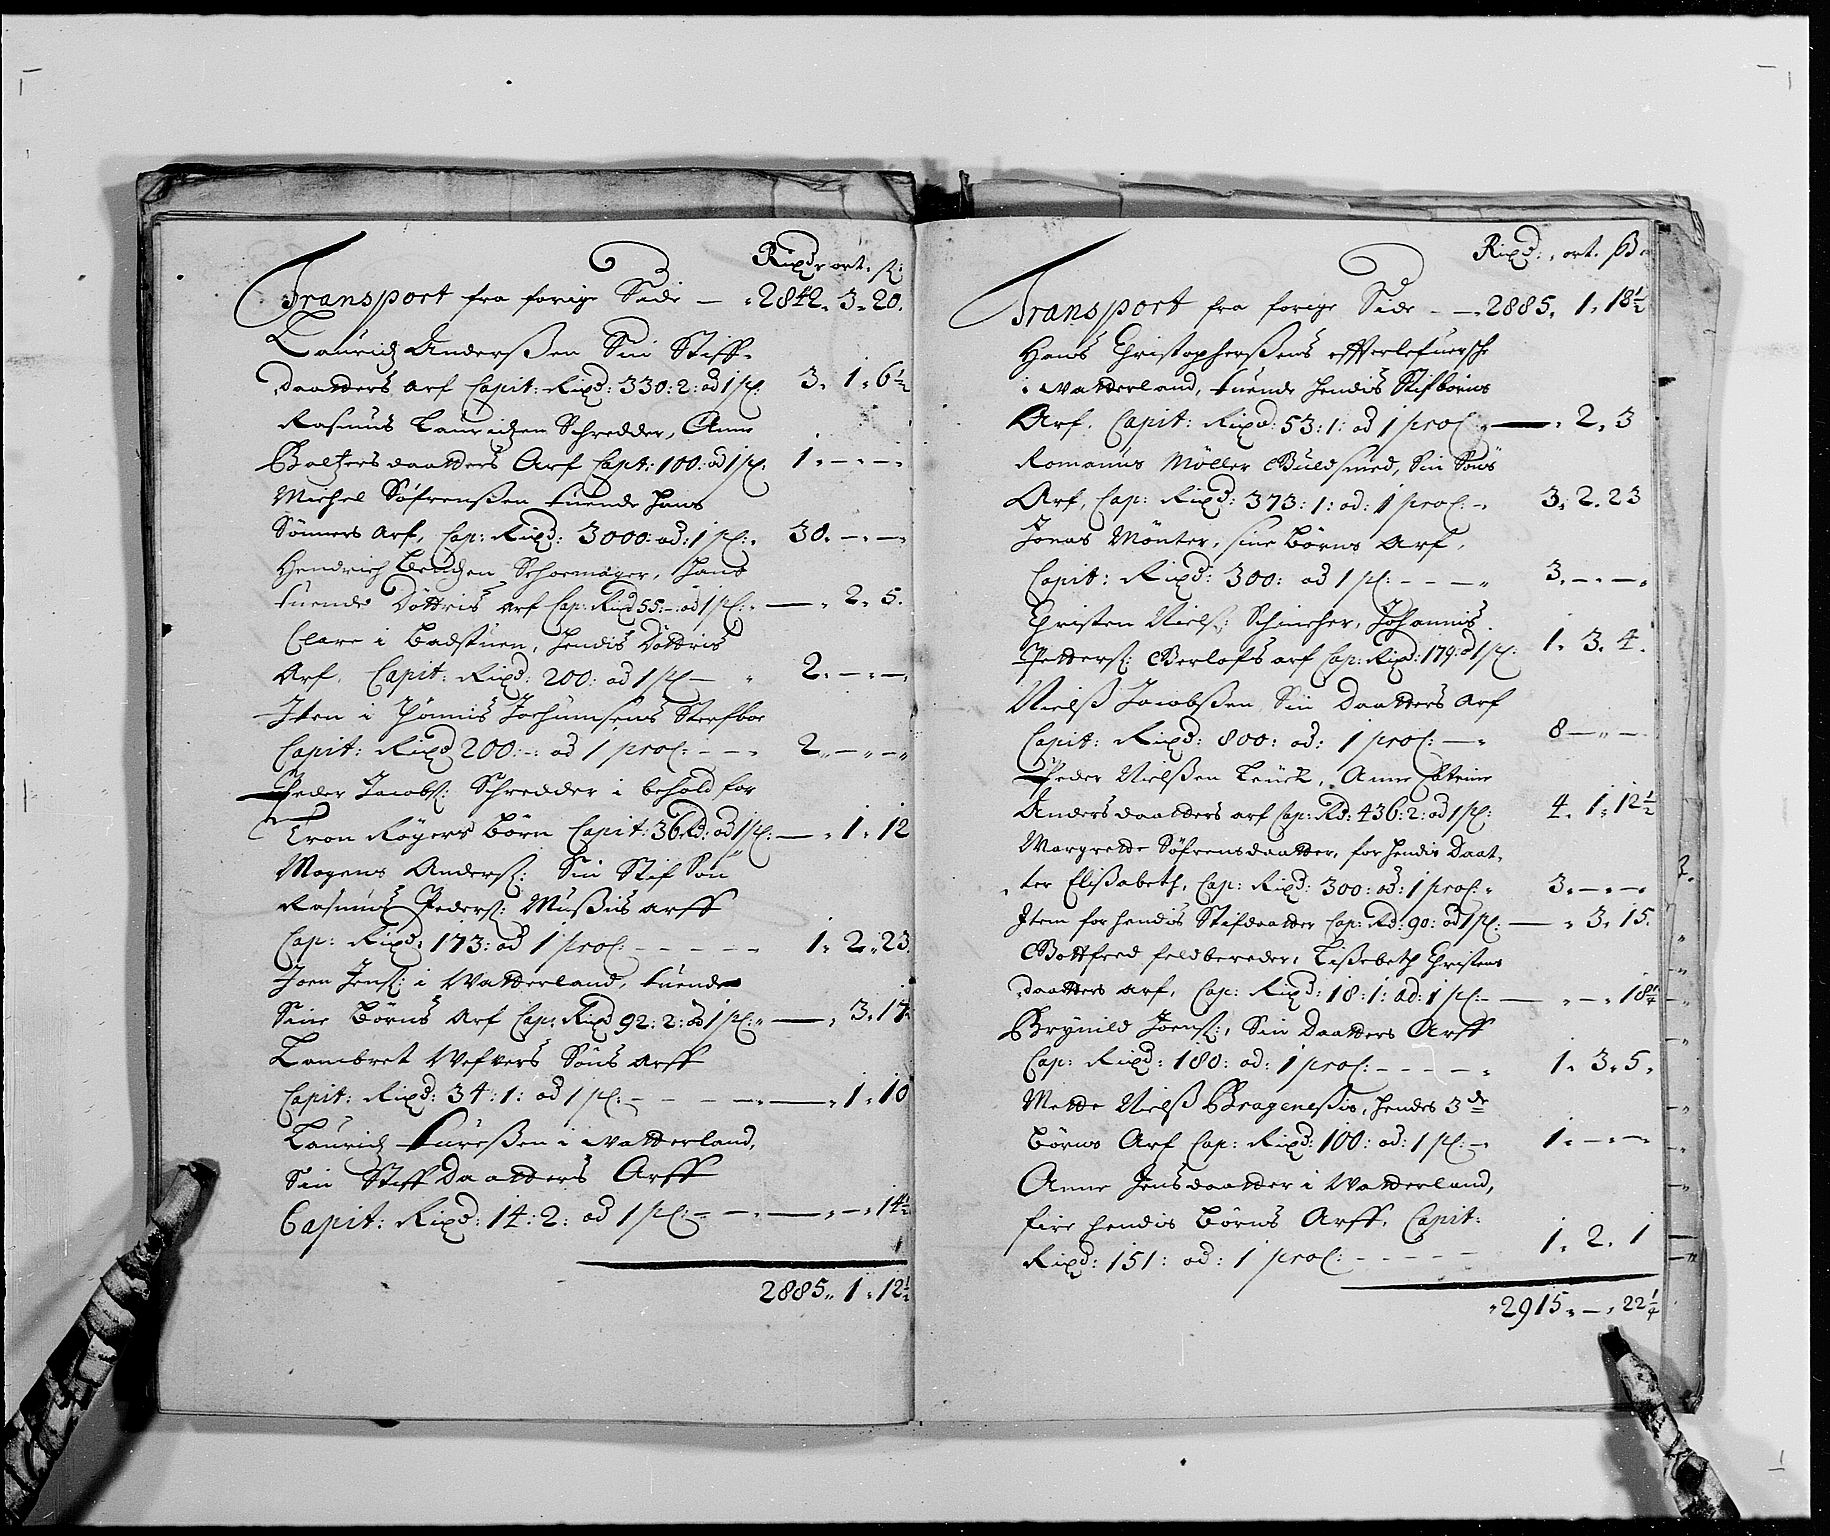 Rixd. ort. ſz:
Transport fra forige Side — 2842. 3. 20.
Lauridz Anderßen Sin Stiff-
daatters Arf Capit: Rixd: 330: 2: ad 1 pC: 3. 1. 6½
Rasmus Lauridzen Schredder, Anne
Baltzersdaatters Arf Capt: 100: ad 1 pC: 1. — . —
Michel Söfrenßen tuende hans
Sönners Arf, Cap: Rixd: 3000: ad: 1 pC: 30. — . —
Hendrich Bendzen Schoemager, hans
tuende Döttris Arf Cap: Rixd 55: — ad 1 pC: — . 2. 5.
Clare i Badstuen, hendis Döttris
Arf, Capit: Rixd: 200: ad 1 pC — 2. — . —
Iten i Thönnis Jochumsens Sterfboe
Capit: Rixd 200: — : ad 1 proC: — — 2. — . —
Peder Jacobs: Schredder i behold for
Tron Röyers Börn Capit: 36 Rd: ad 1 pC: — . 1. 12
Mogens Anders: Sin Stif Sön
Rasmus Peders: Mußis arff
Cap: Rixd: 173: ad 1 proC: — — — 1. 2. 23.
Joen Jens: i Watterland, tuende
Sine Börns Arf Cap: Rixd 92: 2: ad 1 pC: — . 3. 17.
Lambret Wefvers Söns Arff
Capit: Rixd: 34: 1: ad 1 pC: — — — . 1. 10
Lauridz Tureßen i Watterland,
Sin Stiff Daatters Arff
Capit: Rixd: 14: 2: ad 1 pC: — — . — . — . 14½
2885. 1. 12½
Rixd: ort. ß
Transport fra forige Side — 2885. 1. 18½
Hans Christopherßens effterlefuersche
i Watterland, tuende hendis Stifbörns
Arf, Capit: Rixd: 53: 1: ad 1 proC: — . 2. 3
Romanus Möller Guldsmed, Sin Söns
Arf, Cap: Rixd: 373: 1: ad: 1 proC: — 3. 2. 23
Jonas Mönter, sine Börns Arf,
Capit: Rixd: 300: ad 1 pC: — — — 3. — . —
Christen Niels: Schincher, Johannis
Petters: Gerlofs arf Cap: Rixd: 179: ad 1 pC: 1. 3. 4.
Nielß Jacobßen Sin Daatters Arf
Capit: Rixd: 800: ad: 1 proC: — 8 — . —
Peder Nielßen Leuch, Anne Catrine
Andersdaatters arf Cap: Rd: 436: 2: ad 1 pC: 4. 1. 12½
Margrette Söfrensdaatter, for hendis Daat-
ter Elißabeth, Cap: Rixd: 300: ad: 1 proC: 3. — . —
Item for hendis Stifdaatter Cap: Rd: 90: ad 1 pC: — . 3. 15.
Gottfred feldbereder, Lißebeth Christens
daatters arf, Cap: Rixd: 18: 1: ad: 1 pC: — — . — . 18¼
Brynild Joens:, Sin Daatters Arff
Cap: Rixd: 180: ad: 1 proC: — — — 1. 3. 5.
Mette Nielß Brageneßis, hendes 3de
Börns Arf Cap: Rixd: 100: ad: 1 pC: — 1. — . —
Anne Jensdaatter i Watterland,
fire hendis Börns Arff, Capit:
Rixd: 151: ad: 1 proC: — — — 1. 2. 1
2915. — . 22¼